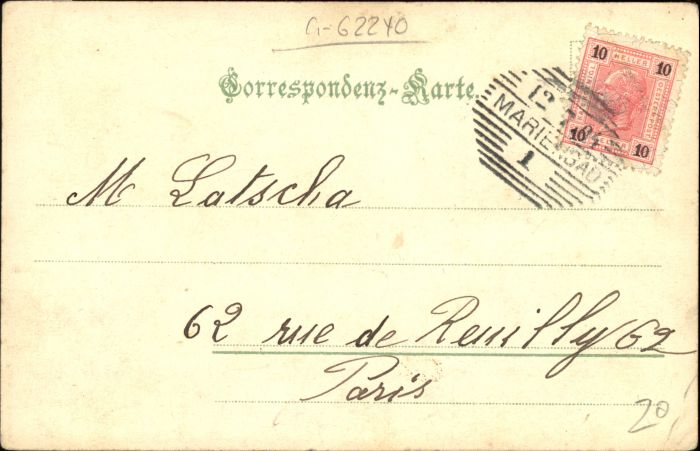 G-62240
Correspondenz-Karte.
10 HELLER 10
10 10
12
MARIENBAD
1
M Latscha
62 rue de Reuilly 62
Paris
20